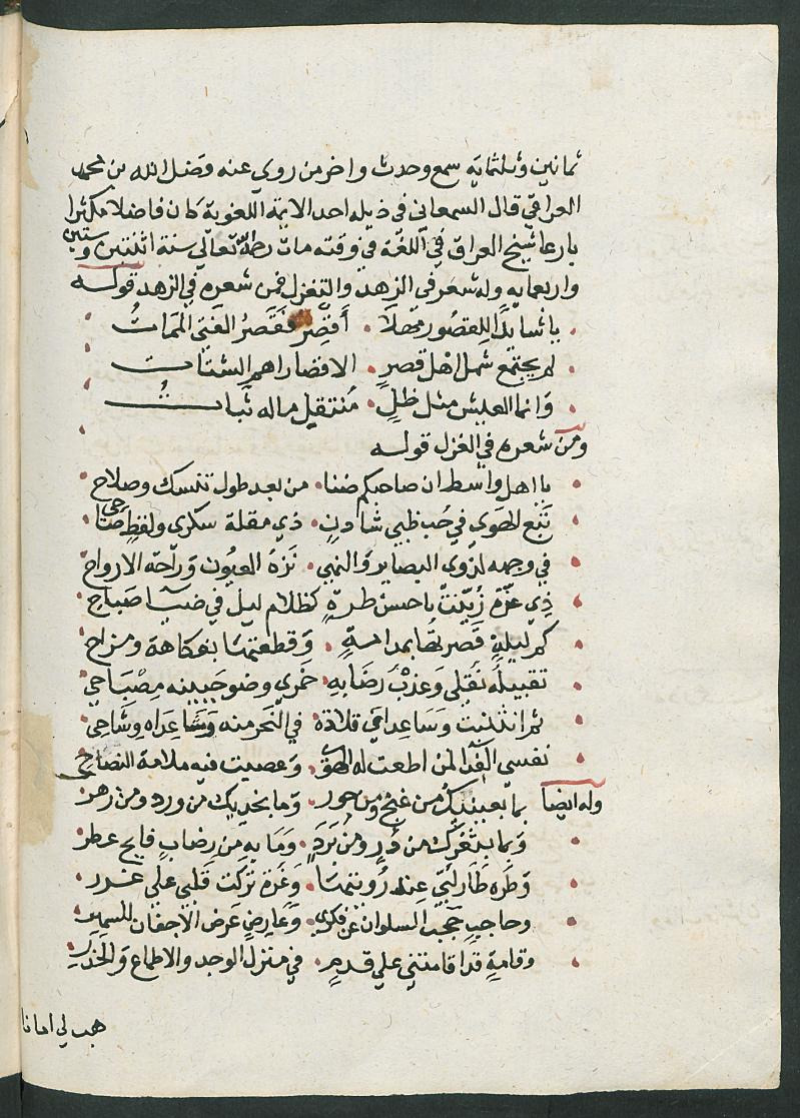 ثمانين وثلثمايه سمع وحدث واخر من روي عنه فضل الله بن محمد
العراقي قال السمعاني في ذيله احد الايمة اللغوية كان فاضلا مكثرا
بارعا شيخ العراق في اللغة في وقته مات رحمه الله تعالي سنة اثنتين وستين
واربعمايه وله شعر في الزهد والتغزل فمن شعره في الزهد قوله
يا شايدًا للقصور مهلًا . أَقصِر فقَصرُ الفتي المَماتُ
لم يجتمع شمل اهل قصرٍ . الا قصاراهم الشتات
وَانما العيش مثل ظلٍ . مُنتقيل ماله ثَبات
ومن شعره في الغزل قوله
يا اهل واسط ان صاحبكم ضنا . من بعد طول تنسك وصلاح
تبع الهَوي في حُب ظبي شادنٍ . ذي مقلة سكرى ولفظٍ صَاحي
في وجهه لذوي البصاير وَالنهي . نَزهُ العيُون وَراحة الارواح
ذِي غرّة زُيِّنتْ باحسن طرةٍ كظلام ليل في ضيآ صباح
كم ليلةٍ قصر تُها بمدامةٍ . وَقطعتهَا بفكاهة ومزاح
تقبيلُه نُقلي وَعذبُ رضَابهِ . خمري وضو جبينه مِصْبَاحي
ثم انثنيت وسَاعداعي قلادة في النحر منه وسَاعدَاه وشَاحي
نفسي الفدا لمن اطعت له الهوَى . وَعصيت فيه ملامة النصَاح
وله ايضا بما بعينيك من غنج ومن حور . وَما بخديك من ورد ومن زهر
وَبما بثغرك من دُرٍ ومن بَرَدٍ . وَمَا بهِ من رضابٍ فايح عطر
وَطره طار لبّي عند رُونتهَا . وَغرَة تركت قلبي علي غرر
وحاجبٍ حَجب السلوان عن فكري وَعارضٍ عَرض الاجفان للسهر
وقامةٍ قد اقامتني علي قدمٍ . في منزل الوجد والاطماع وَالحذر
هب لي امانا